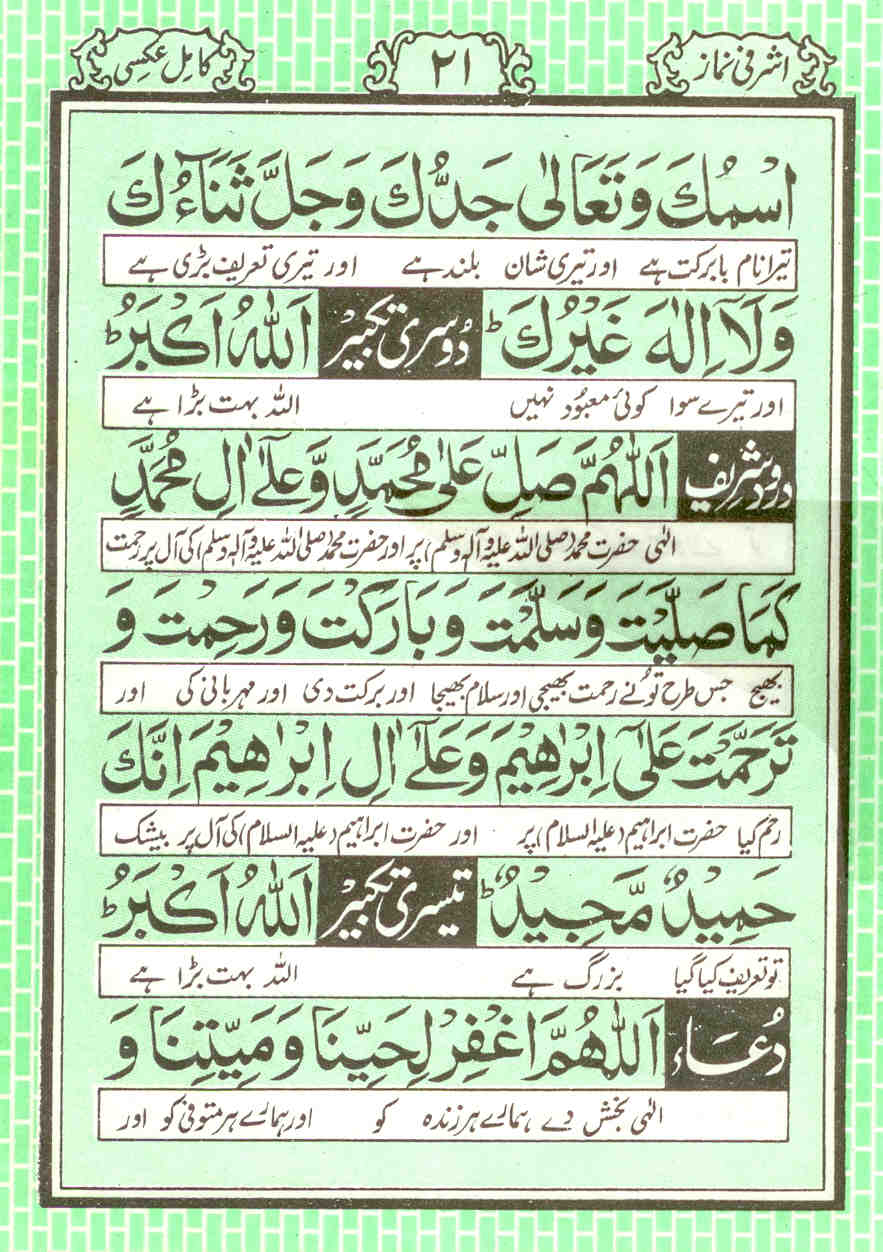 اشرفی نماز ۲۱ کامل عکسی
اسْمُكَ وَتَعَالٰى جَدُّكَ وَجَلَّ ثَنَآءُكَ
تیرا نام بابرکت ہے اور تیری شان بلند ہے اور تیری تعریف بڑی ہے
وَلَآ اِلٰهَ غَيْرُكَ ؕ دُوسری تکبیر اَللّٰهُ اَكْبَرُ ؕ
اور تیرے سوا کوئی معبُود نہیں اللہ بہت بڑا ہے
درود شریف اَللّٰهُمَّ صَلِّ عَلٰى مُحَمَّدٍ وَّعَلٰٓى اٰلِ مُحَمَّدٍ
الٰہی حضرت محمد (صلی اللہ علیہ وآلہ وسلم) پر اور حضرت محمد (صلی اللہ علیہ وآلہ وسلم) کی آل پر رحمت
كَمَا صَلَّيْتَ وَسَلَّمْتَ وَبَارَكْتَ وَرَحِمْتَ وَ
بھیج جس طرح تُونے رحمت بھیجی اور سلام بھیجا اور برکت دی اور مہربانی کی اور
تَرَحَّمْتَ عَلٰٓى اِبْرٰهِيْمَ وَعَلٰٓى اٰلِ اِبْرٰهِيْمَ اِنَّكَ
رحم کیا حضرت ابراہیم (علیہ السلام) پر اور حضرت ابراہیم (علیہ السلام) کی آل پر بیشک
حَمِيْدٌ مَّجِيْدٌ ؕ تیسری تکبیر اَللّٰهُ اَكْبَرُ ؕ
تو تعریف کیا گیا بزرگ ہے اللہ بہت بڑا ہے
دُعَاء اَللّٰهُمَّ اغْفِرْ لِحَيِّنَا وَمَيِّتِنَا وَ
الٰہی بخش دے ہمارے ہر زندہ کو اور ہمارے ہر متوفی کو اور